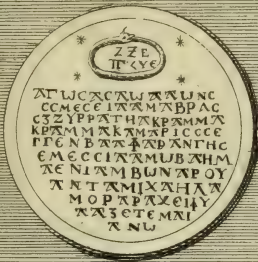 ΖΖΕ
ΠΣΥΕ
ΑΓΩCΑCΑΩΑΑΩΝC
CCΜΕCΕΙΑΑΜΑΒΡΑC
CΖΖΥΡΡΑΤΗΑΚΡΑΜΜΑ
ΚΡΑΜΜΑΚΑΜΑΡΙCCCΕ
ΓΓΕΝΒΑΑΦΑΡΑΝΓΗC
ΕΜΕCCΙΑΑΜΩΒΑΗΜ
ΑΕΝΙΑΜΒΩΝΑΡΟΥ
ΑΝΤΑΜΙΧΑΗΛΑ
ΜΟΡΑΡΑΧΕΙΦΥ
ΑΑΖΕΤΕΜΑΙ
ΑΝΩ